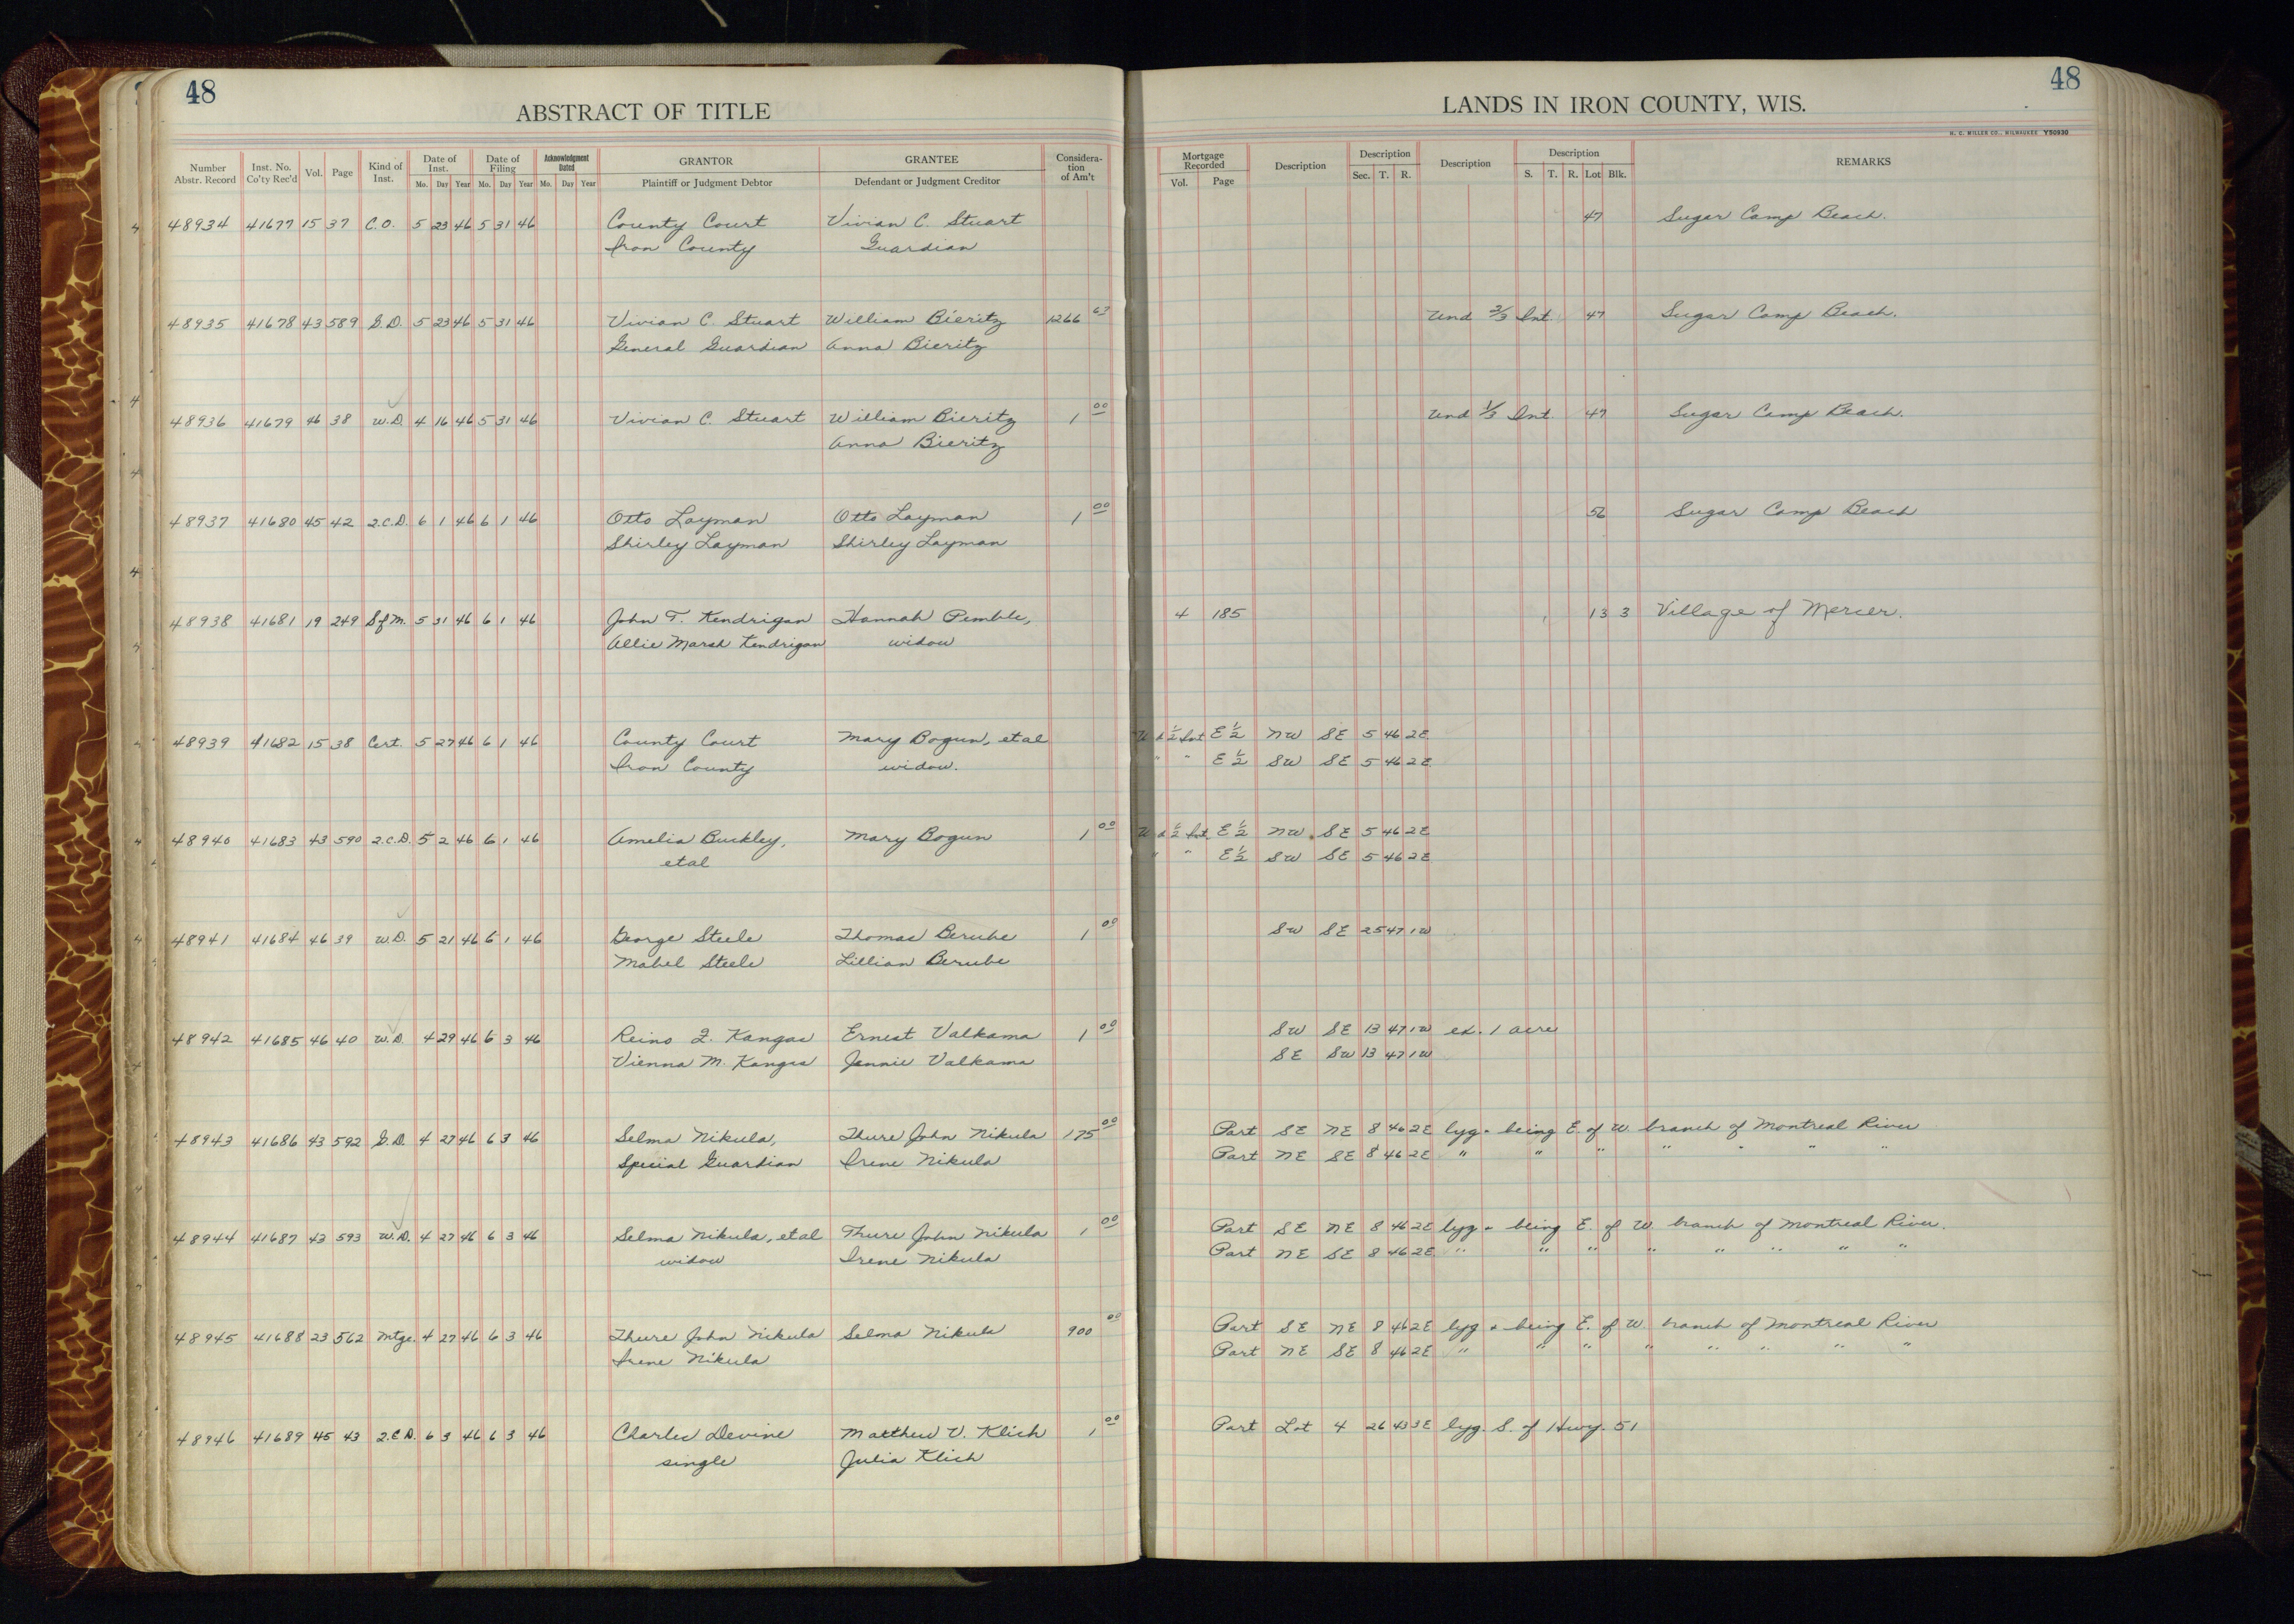 48
48
ABSTRACT OF TITLE
LANDS IN IRON COUNTY, WIS.
H. C. MILLER CO., MILWAUKEE Y50930
Number Abstr. Record Inst. No. Co'ty Rec'd Vol. Page Kind of Inst. Date of Inst. Mo. Day Year Date of Filing Mo. Day Year Acknowledgment Dated Mo. Day Year GRANTOR Plaintiff or Judgment Debtor GRANTEE Defendant or Judgment Creditor Considera-tion of Am't Mortgage Recorded Vol. Page Description Description Sec. T. R. Description Description S. T. R. Lot Blk. REMARKS
48934 41677 15 37 C.O. 5 23 46 5 31 46 County Court Vivian C. Stuart 47 Sugar Camp Beach.
Iron County Guardian
48935 41678 43 589 G.D. 5 23 46 5 31 46 Vivian C. Stuart William Bieritz 1266 63 Und 2/3 Int. 47 Sugar Camp Beach.
General Guardian Anna Bieritz
48936 41679 46 38 W.D. 4 16 46 5 31 46 Vivian C. Stuart William Bieritz 1 00 Und 1/3 Int. 47 Sugar Camp Beach.
Anna Bieritz
48937 41680 45 42 2.C.D. 6 1 46 6 1 46 Otto Layman Otto Layman 1 00 56 Sugar Camp Beach
Shirley Layman Shirley Layman
48938 41681 19 249 SfM. 5 31 46 6 1 46 John T. Kendrigan Hannah Pemble, 4 185 13 3 Village of Mercer.
Allie Marsh Kendrigan widow
48939 41682 15 38 Cert. 5 27 46 6 1 46 County Court Mary Bogun, et al U d 1/2 Int E 1/2 NW SE 5 46 2E
Iron County widow. " " E 1/2 SW SE 5 46 2E
48940 41683 43 590 2.C.D. 5 2 46 6 1 46 Amelia Buckley, Mary Bogun 1 00 U d 1/2 Int E 1/2 NW SE 5 46 2E
et al " " E 1/2 SW SE 5 46 2E
48941 41684 46 39 W.D. 5 21 46 6 1 46 George Steele Thomas Berube 1 00 SW SE 25 47 1W
Mabel Steele Lillian Berube
48942 41685 46 40 W.D. 4 29 46 6 3 46 Reino I. Kangas Ernest Valkama 1 00 SW SE 13 47 1W ex. 1 acre
Vienna M. Kangas Jennie Valkama SE SW 13 47 1W
48943 41686 43 592 G.D. 4 27 46 6 3 46 Selma Nikula, Thure John Nikula 175 00 Part SE NE 8 46 2E lyg + being E. of W. branch of Montreal River
Special Guardian Irene Nikula Part NE SE 8 46 2E " " " " " " "
48944 41687 43 593 W.D. 4 27 46 6 3 46 Selma Nikula, et al Thure John Nikula 1 00 Part SE NE 8 46 2E lyg + being E. of W. branch of Montreal River.
widow Irene Nikula Part NE SE 8 46 2E " " " " " " " "
48945 41688 23 562 Mtge. 4 27 46 6 3 46 Thure John Nikula Selma Nikula 900 00 Part SE NE 8 46 2E lyg + being E. of W. branch of Montreal River
Irene Nikula Part NE SE 8 46 2E " " " " " " " "
48946 41689 45 43 2.C.D. 6 3 46 6 3 46 Charles Devine Matthew V. Klich 1 00 Part Lot 4 26 43 3E lyg. S. of Hwy. 51
single Julia Klich